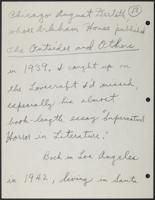 Chicago August Derleth (13)
whose Arkham House published
The Outsider and Others
in 1939. I caught up on
the Lovecraft I'd missed,
especially his almost
book-length essay "Supernatural
Horror in Literature."
Back in Los Angeles
in 1942, living in Santa